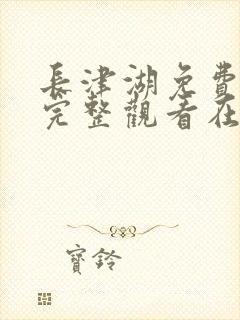 長津湖免費
完整觀看在
寶鈴